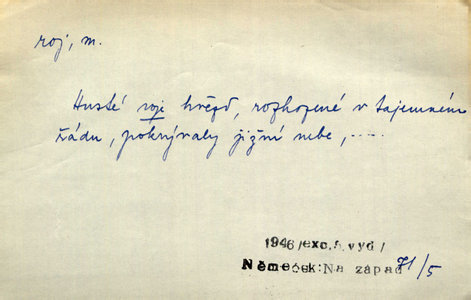 roj, m.
Husté roje hvězd, rozhozené v tajemném
řádu, pokrývaly jižní nebe, .....
1946/exc.5.vyd/
Němeček:Na západ 71/5